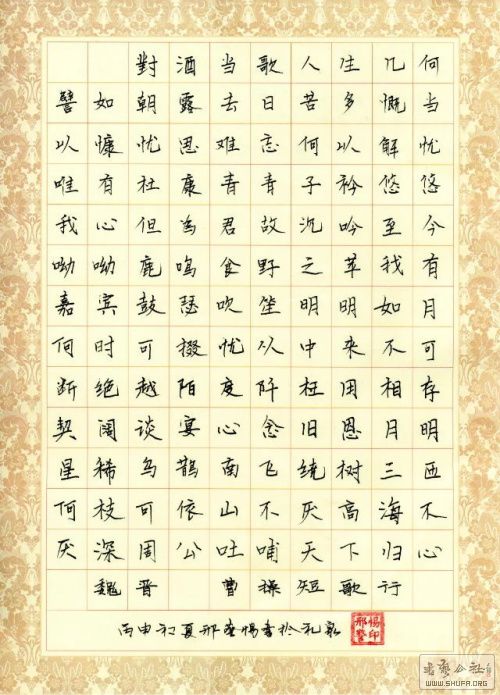 對酒当歌人生几何
譬如朝露去日苦多慨当
以慷忧思难忘何以解忧
唯有杜康青青子衿悠悠
我心但為君故沉吟至今
呦呦鹿鸣食野之苹我有
嘉宾鼓瑟吹笙明明如月
何时可掇忧从中来不可
断绝越陌度阡枉用相存
契阔谈宴心念旧恩月明
星稀乌鹊南飞绕树三匝
何枝可依山不厌高海不
厌深周公吐哺天下归心
魏晋 曹操短歌行
丙申初夏邢惕書於礼泉
WWW.SHUFA.ORG